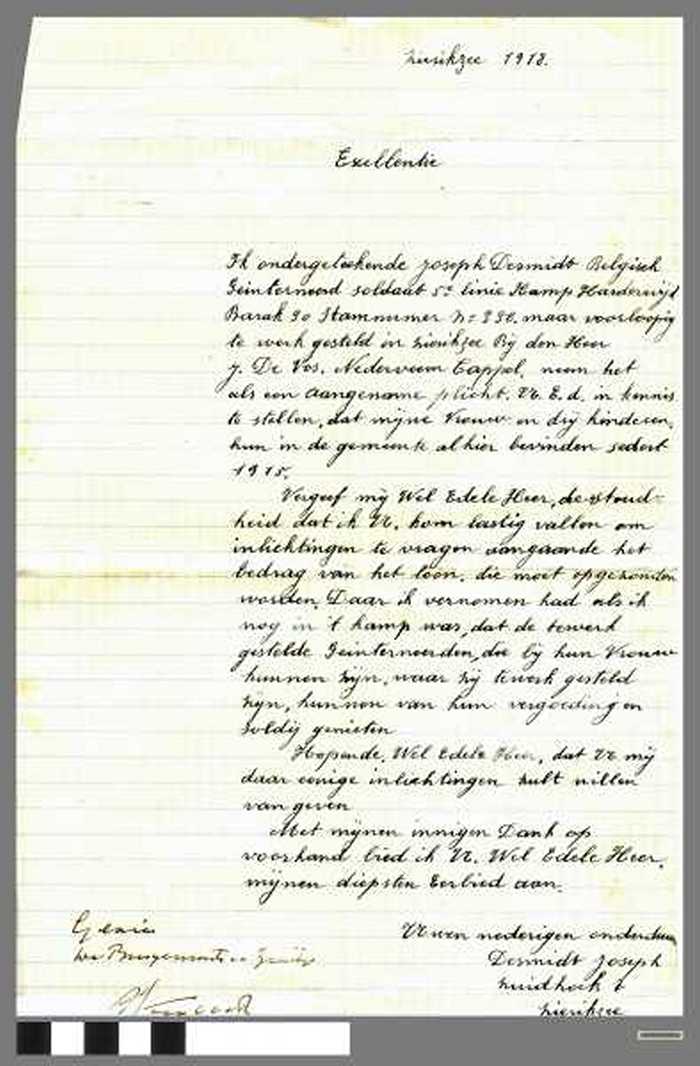 Zierikzee 1918.
Exellentie
Ik ondergeteekende Joseph Desmidt Belgisch
Geinterneerd soldaat 5e linie Kamp Harderwijk
Barak 90 Stamnumer maar voorloopig
te werk gesteld in Zierikzee Bij den Heer
J. De Vos. Nederveem Cappel, neem het
als een aangename plicht. U. E. d. in kennis
te stellen, dat mijne Vrouw en drij kinderen,
hun in de gemeente alhier bevinden sedert
1915.
Vergeef mij Wel Edele Heer, de stoud-
heid dat ik U. kom lastig vallen om
inlichtingen te vragen aangaande het
bedrag van het loon, die moet opgezonden
worden. Daar ik vernomen had als ik
nog in 't kamp was, dat de tewerk
gestelde Geinterneerden, die bij hun Vrouw
kunnen zijn, waar zij tewerk gesteld
zijn, kunnen van hun vergoeding en
soldij genieten
Hopende, Wel Edele Heer, dat U mij
daar eenige inlichtingen zult willen
van geven
Met mijnen innigen Dank op
voorhand bied ik U. Wel Edele Heer,
mijnen diepsten Eerbied aan.
Uwen nederigen onderdaan
Desmidt Joseph
Zuidhoek
Zierikzee
Gezien
De Burgemeester